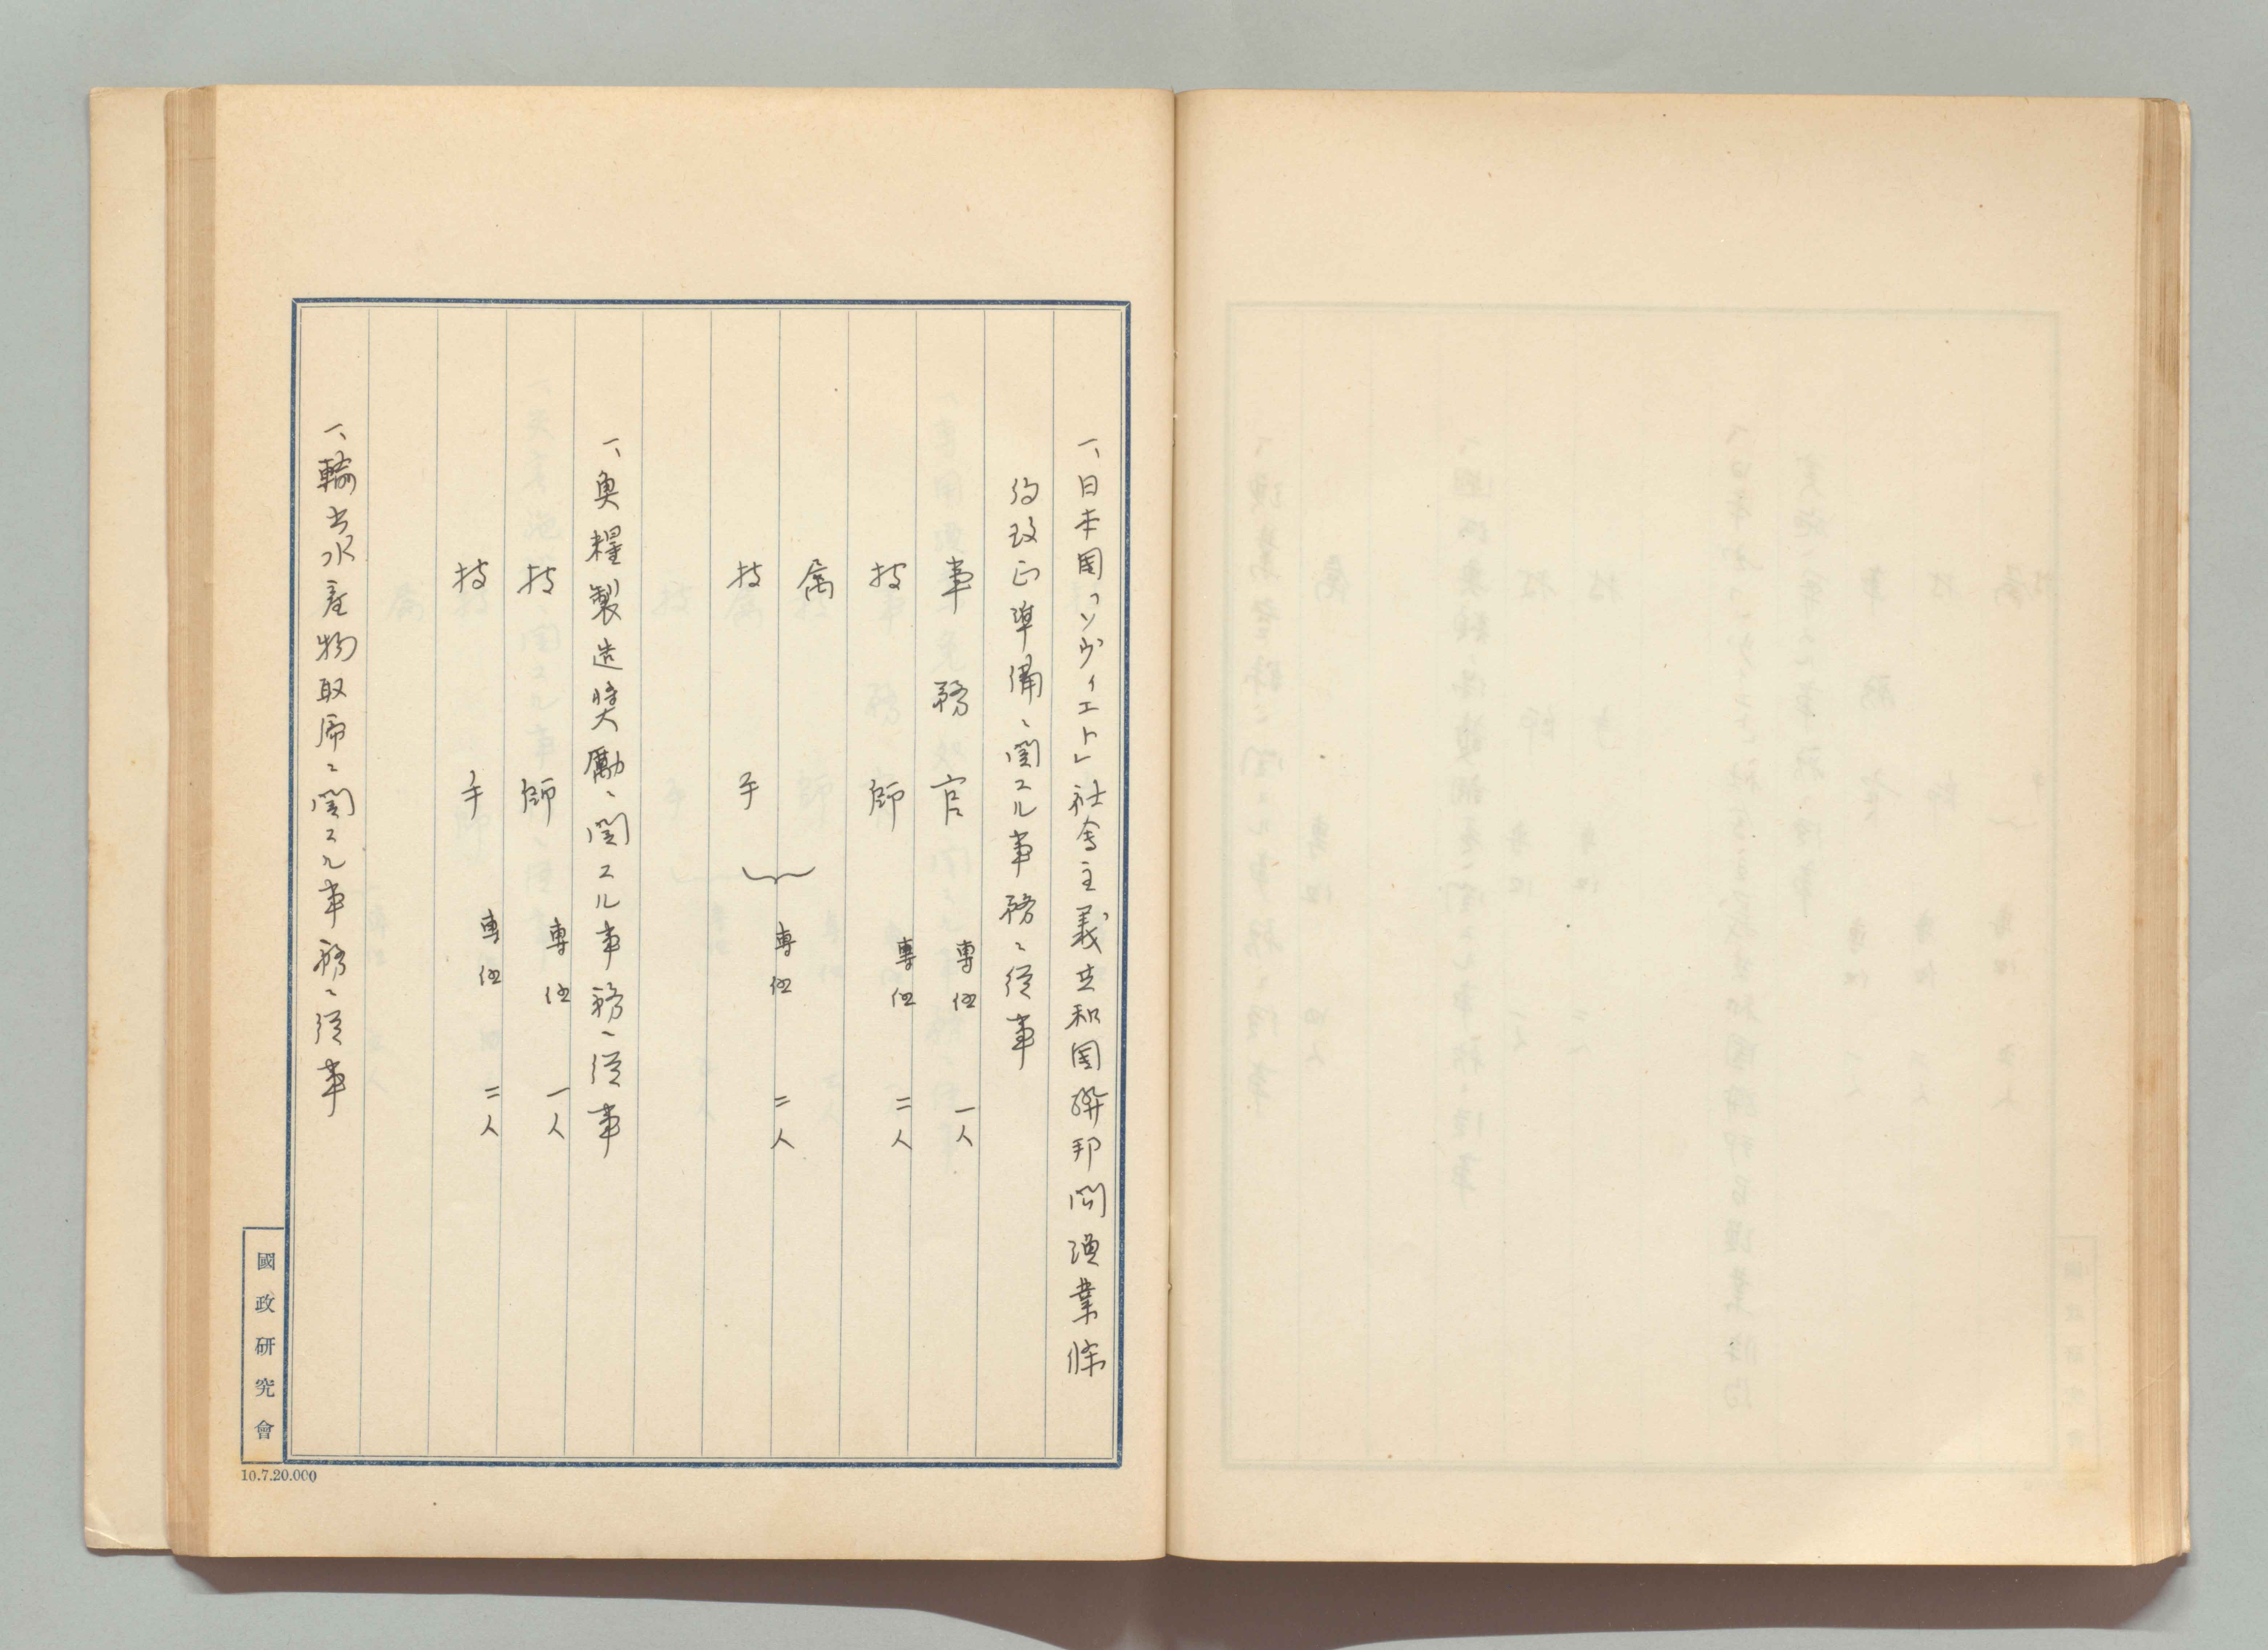 一、日本国「ソヴィエト」社会主義共和国聯邦間漁業條
約改正準備ニ関スル事務ニ従事
事務官 専任 一人
技師 専任 二人
属
技手 専任 二人
一、魚糧製造奨励ニ関スル事務ニ従事
技師 専任 一人
技手 専任 二人
一、輸出水産物取締ニ関スル事務ニ従事
國政研究會
10.7.20.000